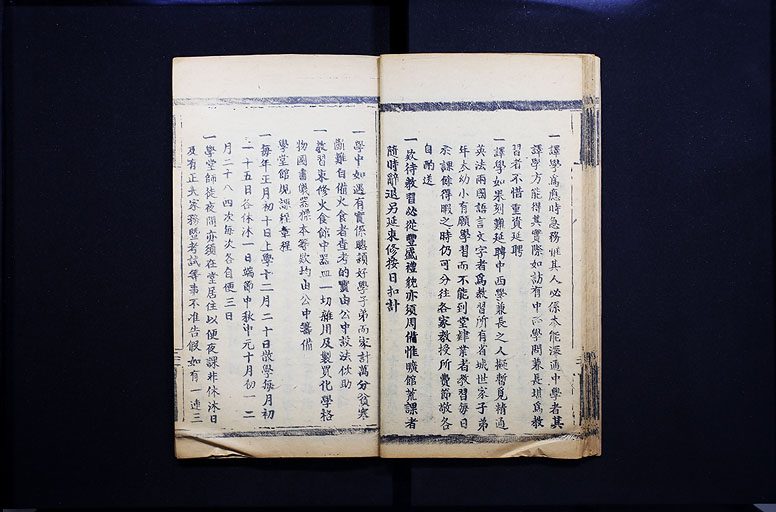 一譯學爲應時急務惟其人必係本能深通中學者其
譯學方能得其實際如訪有中西學問兼長堪爲教
習者不惜重資延聘
一譯學如果刻難延聘中西學兼長之人擬暫覓精通
英法兩國語言文字者爲教習所有省城世家子弟
年太幼小有願學習而不能到堂肄業者教習每日
除課餘得暇之時仍可分往各家教授所費節敬各
自酌送
一欵待教習必從豐盛禮貌亦須周備惟曠館荒課者
隨時辭退另延束修按日扣計
一學中如遇有實係聰穎好學子弟而家計萬分貧寒
斷難自備火食者查考的實由公中設法佽助
一教習束修火食館中器皿一切雜用及製買化學格
物圖書儀器標本等欵均由公中籌備
學堂館規課程章程
一每年正月初十日上學十二月二十日散學每月初
一十五日各休沐一日端節中秋中元十月初一二
月二十八四次每次各自便三日
一學堂師徒夜間亦須在堂居住以便夜課非休沐日
及有正大家務暨考試等事不准告假如有一連三